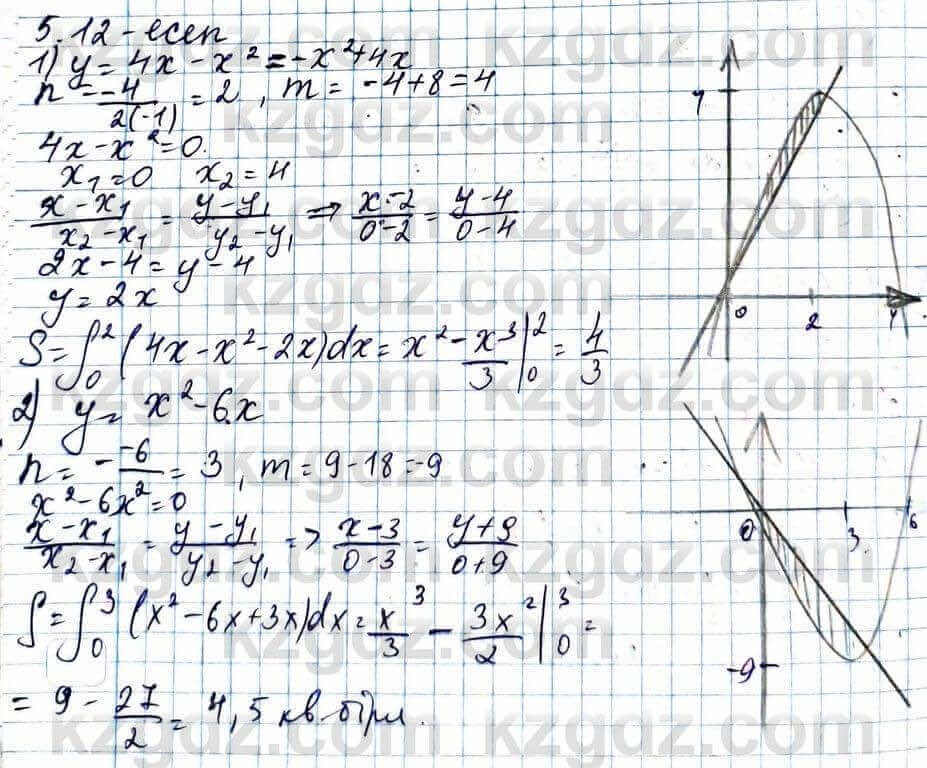 5.12-есеп
1) y = 4x - x² = -x² + 4x
n = -4/2(-1) = 2, m = -4+8 = 4
4x - x² = 0.
x₁ = 0 x₂ = 4
x - x₁/x₂ - x₁ = y - y₁/y₂ - y₁ ⇒ x - 2/0 - 2 = y - 4/0 - 4
2x - 4 = y - 4
y = 2x
S = ∫₀² (4x - x² - 2x)dx = x² - x³/3 |₀² = 4/3
2) y = x² - 6x
n = - -6/ = 3, m = 9 - 18 = -9
x² - 6x² = 0
x - x₁/x₂ - x₁ = y - y₁/y₂ - y₁ => x - 3/0 - 3 = y + 9/0 + 9
S = ∫₀³ (x² - 6x + 3x)dx = x³/3 - 3x²/2 |₀³ =
= 9 - 27/2 = 4,5 кв.бірл.
4
0 2 4
0 3 6
-9
kzgdz.com